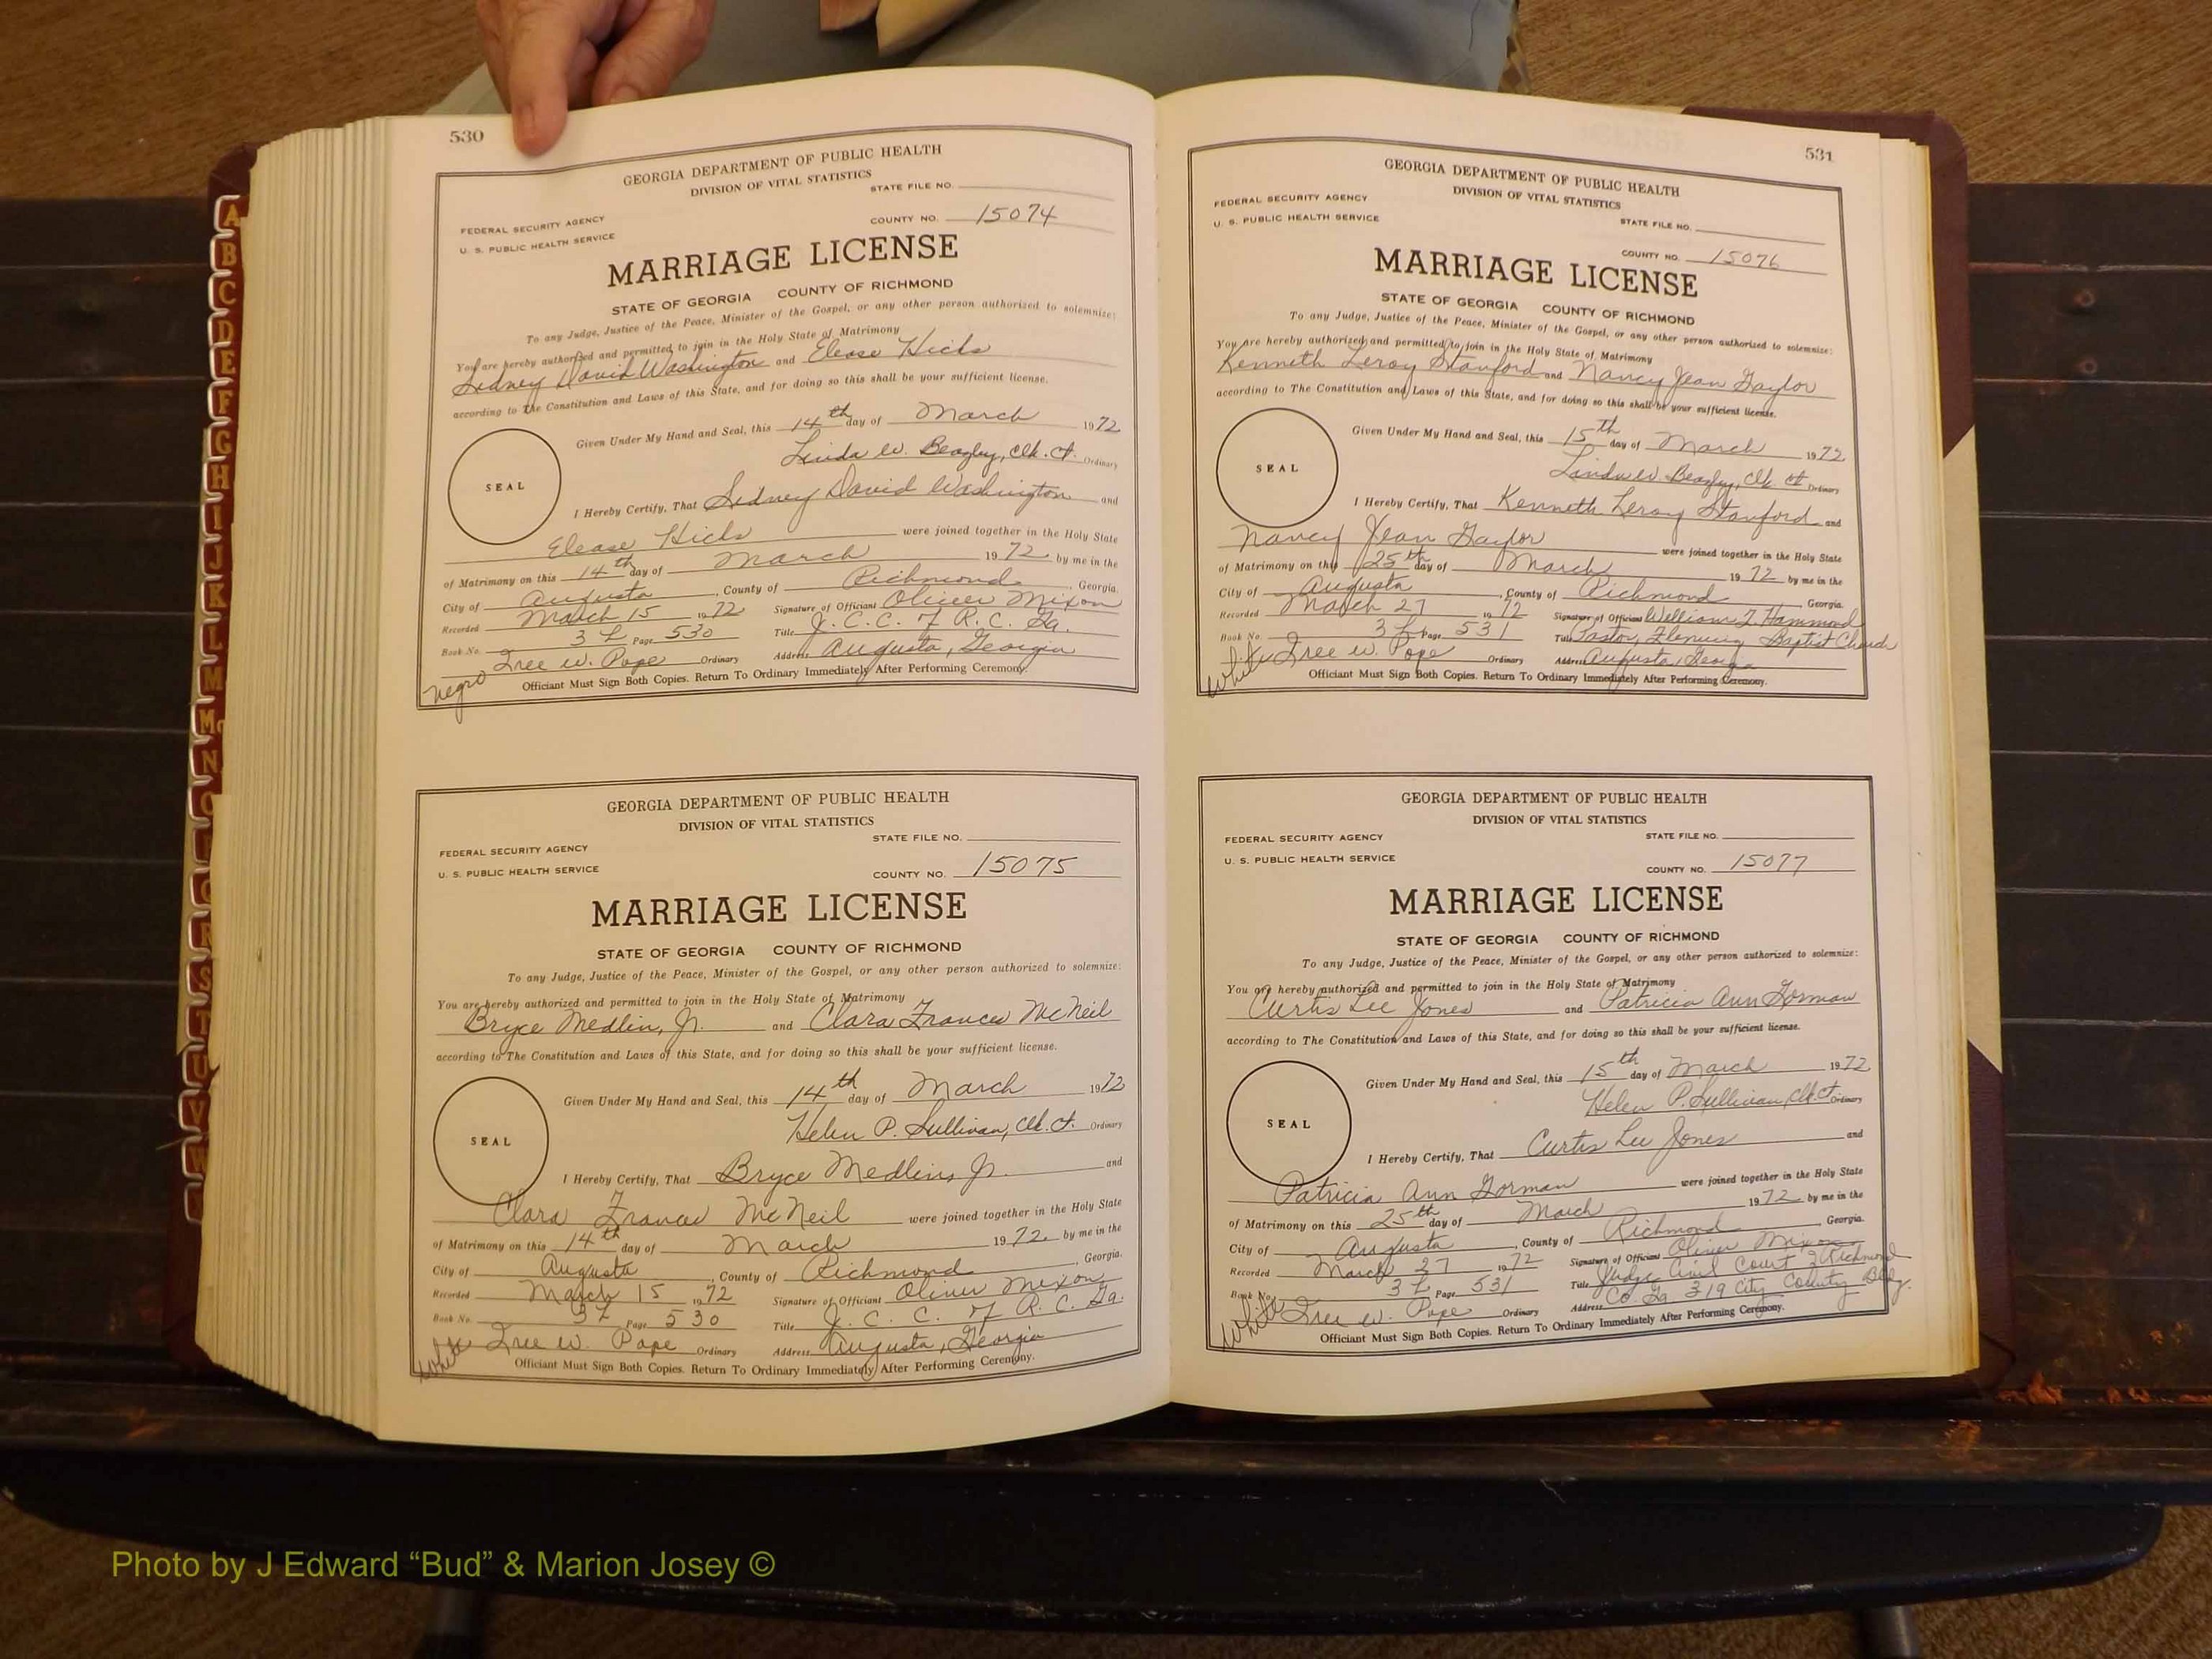 530
GEORGIA DEPARTMENT OF PUBLIC HEALTH
DIVISION OF VITAL STATISTICS
STATE FILE NO.
FEDERAL SECURITY AGENCY
COUNTY NO. 15074
U. S. PUBLIC HEALTH SERVICE
MARRIAGE LICENSE
STATE OF GEORGIA COUNTY OF RICHMOND
To any Judge, Justice of the Peace, Minister of the Gospel, or any other person authorized to solemnize:
You are hereby authorized and permitted to join in the Holy State of Matrimony
Sidney David Washington and Elease Hicks
according to The Constitution and Laws of this State, and for doing so this shall be your sufficient license.
Given Under My Hand and Seal, this 14th day of March 1972
Linda W. Beazley, Clk. Ct. Ordinary
SEAL
I Hereby Certify, That Sidney David Washington and
Elease Hicks were joined together in the Holy State
of Matrimony on this 14th day of March 1972 by me in the
City of Augusta, County of Richmond, Georgia.
Recorded March 15 1972 Signature of Officiant Oliver Mixon
Book No. 3 L Page 530 Title J. C. C. of R. C. Ga.
Free W. Pope Ordinary Address Augusta, Georgia
negro
Officiant Must Sign Both Copies. Return To Ordinary Immediately After Performing Ceremony.
GEORGIA DEPARTMENT OF PUBLIC HEALTH
DIVISION OF VITAL STATISTICS
STATE FILE NO.
FEDERAL SECURITY AGENCY
U. S. PUBLIC HEALTH SERVICE
COUNTY NO. 15075
MARRIAGE LICENSE
STATE OF GEORGIA COUNTY OF RICHMOND
To any Judge, Justice of the Peace, Minister of the Gospel, or any other person authorized to solemnize:
You are hereby authorized and permitted to join in the Holy State of Matrimony
Bryce Medlin, Jr. and Clara Frances McNeil
according to The Constitution and Laws of this State, and for doing so this shall be your sufficient license.
Given Under My Hand and Seal, this 14th day of March 1972
Helen P. Sullivan, Clk. Ct. Ordinary
SEAL
I Hereby Certify, That Bryce Medlin, Jr. and
Clara Frances McNeil were joined together in the Holy State
of Matrimony on this 14th day of March 1972 by me in the
City of Augusta, County of Richmond, Georgia.
Recorded March 15 1972 Signature of Officiant Oliver Mixon
Book No. 3 L Page 530 Title J. C. C. of R. C. Ga.
Free W. Pope Ordinary Address Augusta, Georgia
white
Officiant Must Sign Both Copies. Return To Ordinary Immediately After Performing Ceremony.
531
GEORGIA DEPARTMENT OF PUBLIC HEALTH
DIVISION OF VITAL STATISTICS
FEDERAL SECURITY AGENCY
U. S. PUBLIC HEALTH SERVICE
STATE FILE NO.
COUNTY NO. 15076
MARRIAGE LICENSE
STATE OF GEORGIA COUNTY OF RICHMOND
To any Judge, Justice of the Peace, Minister of the Gospel, or any other person authorized to solemnize:
You are hereby authorized and permitted to join in the Holy State of Matrimony
Kenneth Leroy Stanford and Nancy Jean Gaylor
according to The Constitution and Laws of this State, and for doing so this shall be your sufficient license.
Given Under My Hand and Seal, this 15th day of March 1972
Linda W. Beazley, Clk Ct Ordinary
SEAL
I Hereby Certify, That Kenneth Leroy Stanford and
Nancy Jean Gaylor were joined together in the Holy State
of Matrimony on this 25th day of March 1972 by me in the
City of Augusta, County of Richmond, Georgia.
Recorded March 27 1972 Signature of Officiant William J Hammond
Book No. 3 L Page 531 Title Pastor, Fleming Baptist Church
Free W. Pope Ordinary Address Augusta, Georgia
white
Officiant Must Sign Both Copies. Return To Ordinary Immediately After Performing Ceremony.
GEORGIA DEPARTMENT OF PUBLIC HEALTH
DIVISION OF VITAL STATISTICS
FEDERAL SECURITY AGENCY
STATE FILE NO.
U. S. PUBLIC HEALTH SERVICE
COUNTY NO. 15077
MARRIAGE LICENSE
STATE OF GEORGIA COUNTY OF RICHMOND
To any Judge, Justice of the Peace, Minister of the Gospel, or any other person authorized to solemnize:
You are hereby authorized and permitted to join in the Holy State of Matrimony
Curtis Lee Jones and Patricia Ann Gorman
according to The Constitution and Laws of this State, and for doing so this shall be your sufficient license.
Given Under My Hand and Seal, this 15th day of March 1972
Helen P. Sullivan, Clk. Ct. Ordinary
SEAL
I Hereby Certify, That Curtis Lee Jones and
Patricia Ann Gorman were joined together in the Holy State
of Matrimony on this 25th day of March 1972 by me in the
City of Augusta, County of Richmond, Georgia.
Recorded March 27 1972 Signature of Officiant Oliver Mixon
Book No. 3 L Page 531 Title Judge Civil Court of Richmond
Free W. Pope Ordinary Address Co. Ga 319 City County Bldg.
white
Officiant Must Sign Both Copies. Return To Ordinary Immediately After Performing Ceremony.
A
B
C
D
E
F
G
H
I
J
K
L
M
Mc
N
O
Q
R
S
T
U
V
W
Photo by J Edward “Bud” & Marion Josey ©